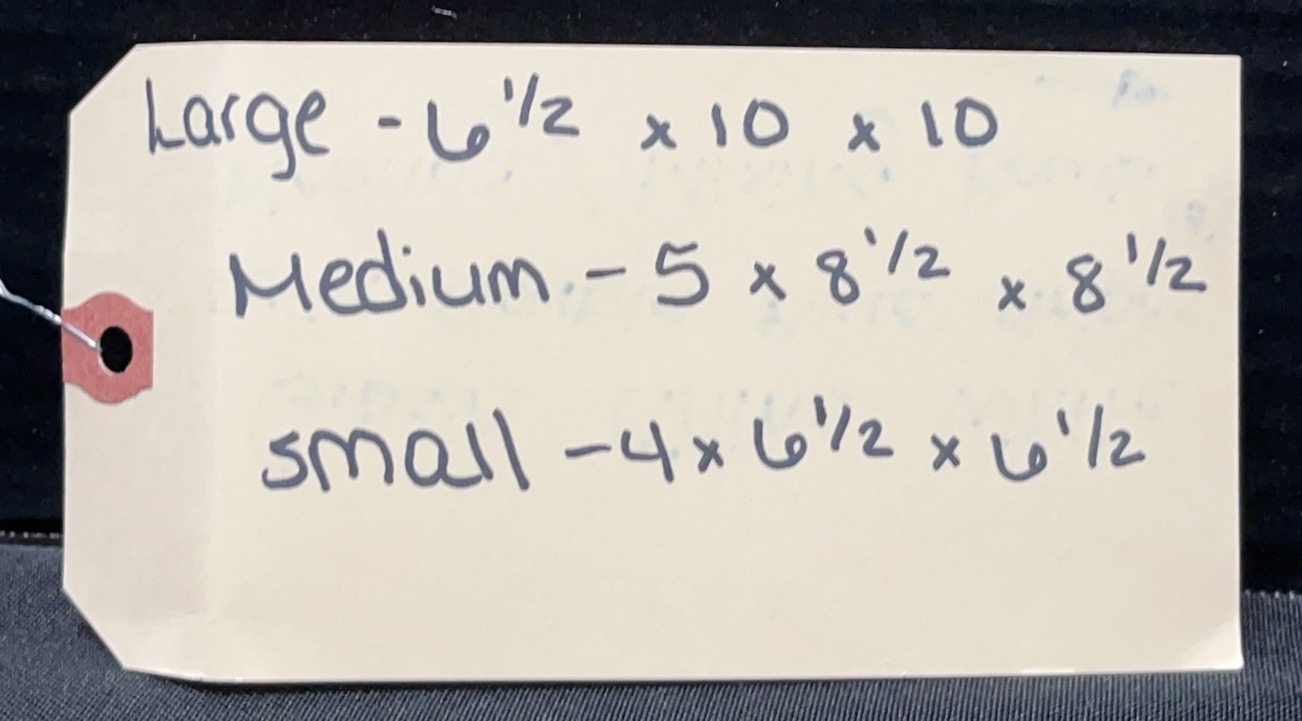 Large - 6 1/2 x 10 x 10
Medium - 5 x 8 1/2 x 8 1/2
small - 4 x 6 1/2 x 6 1/2